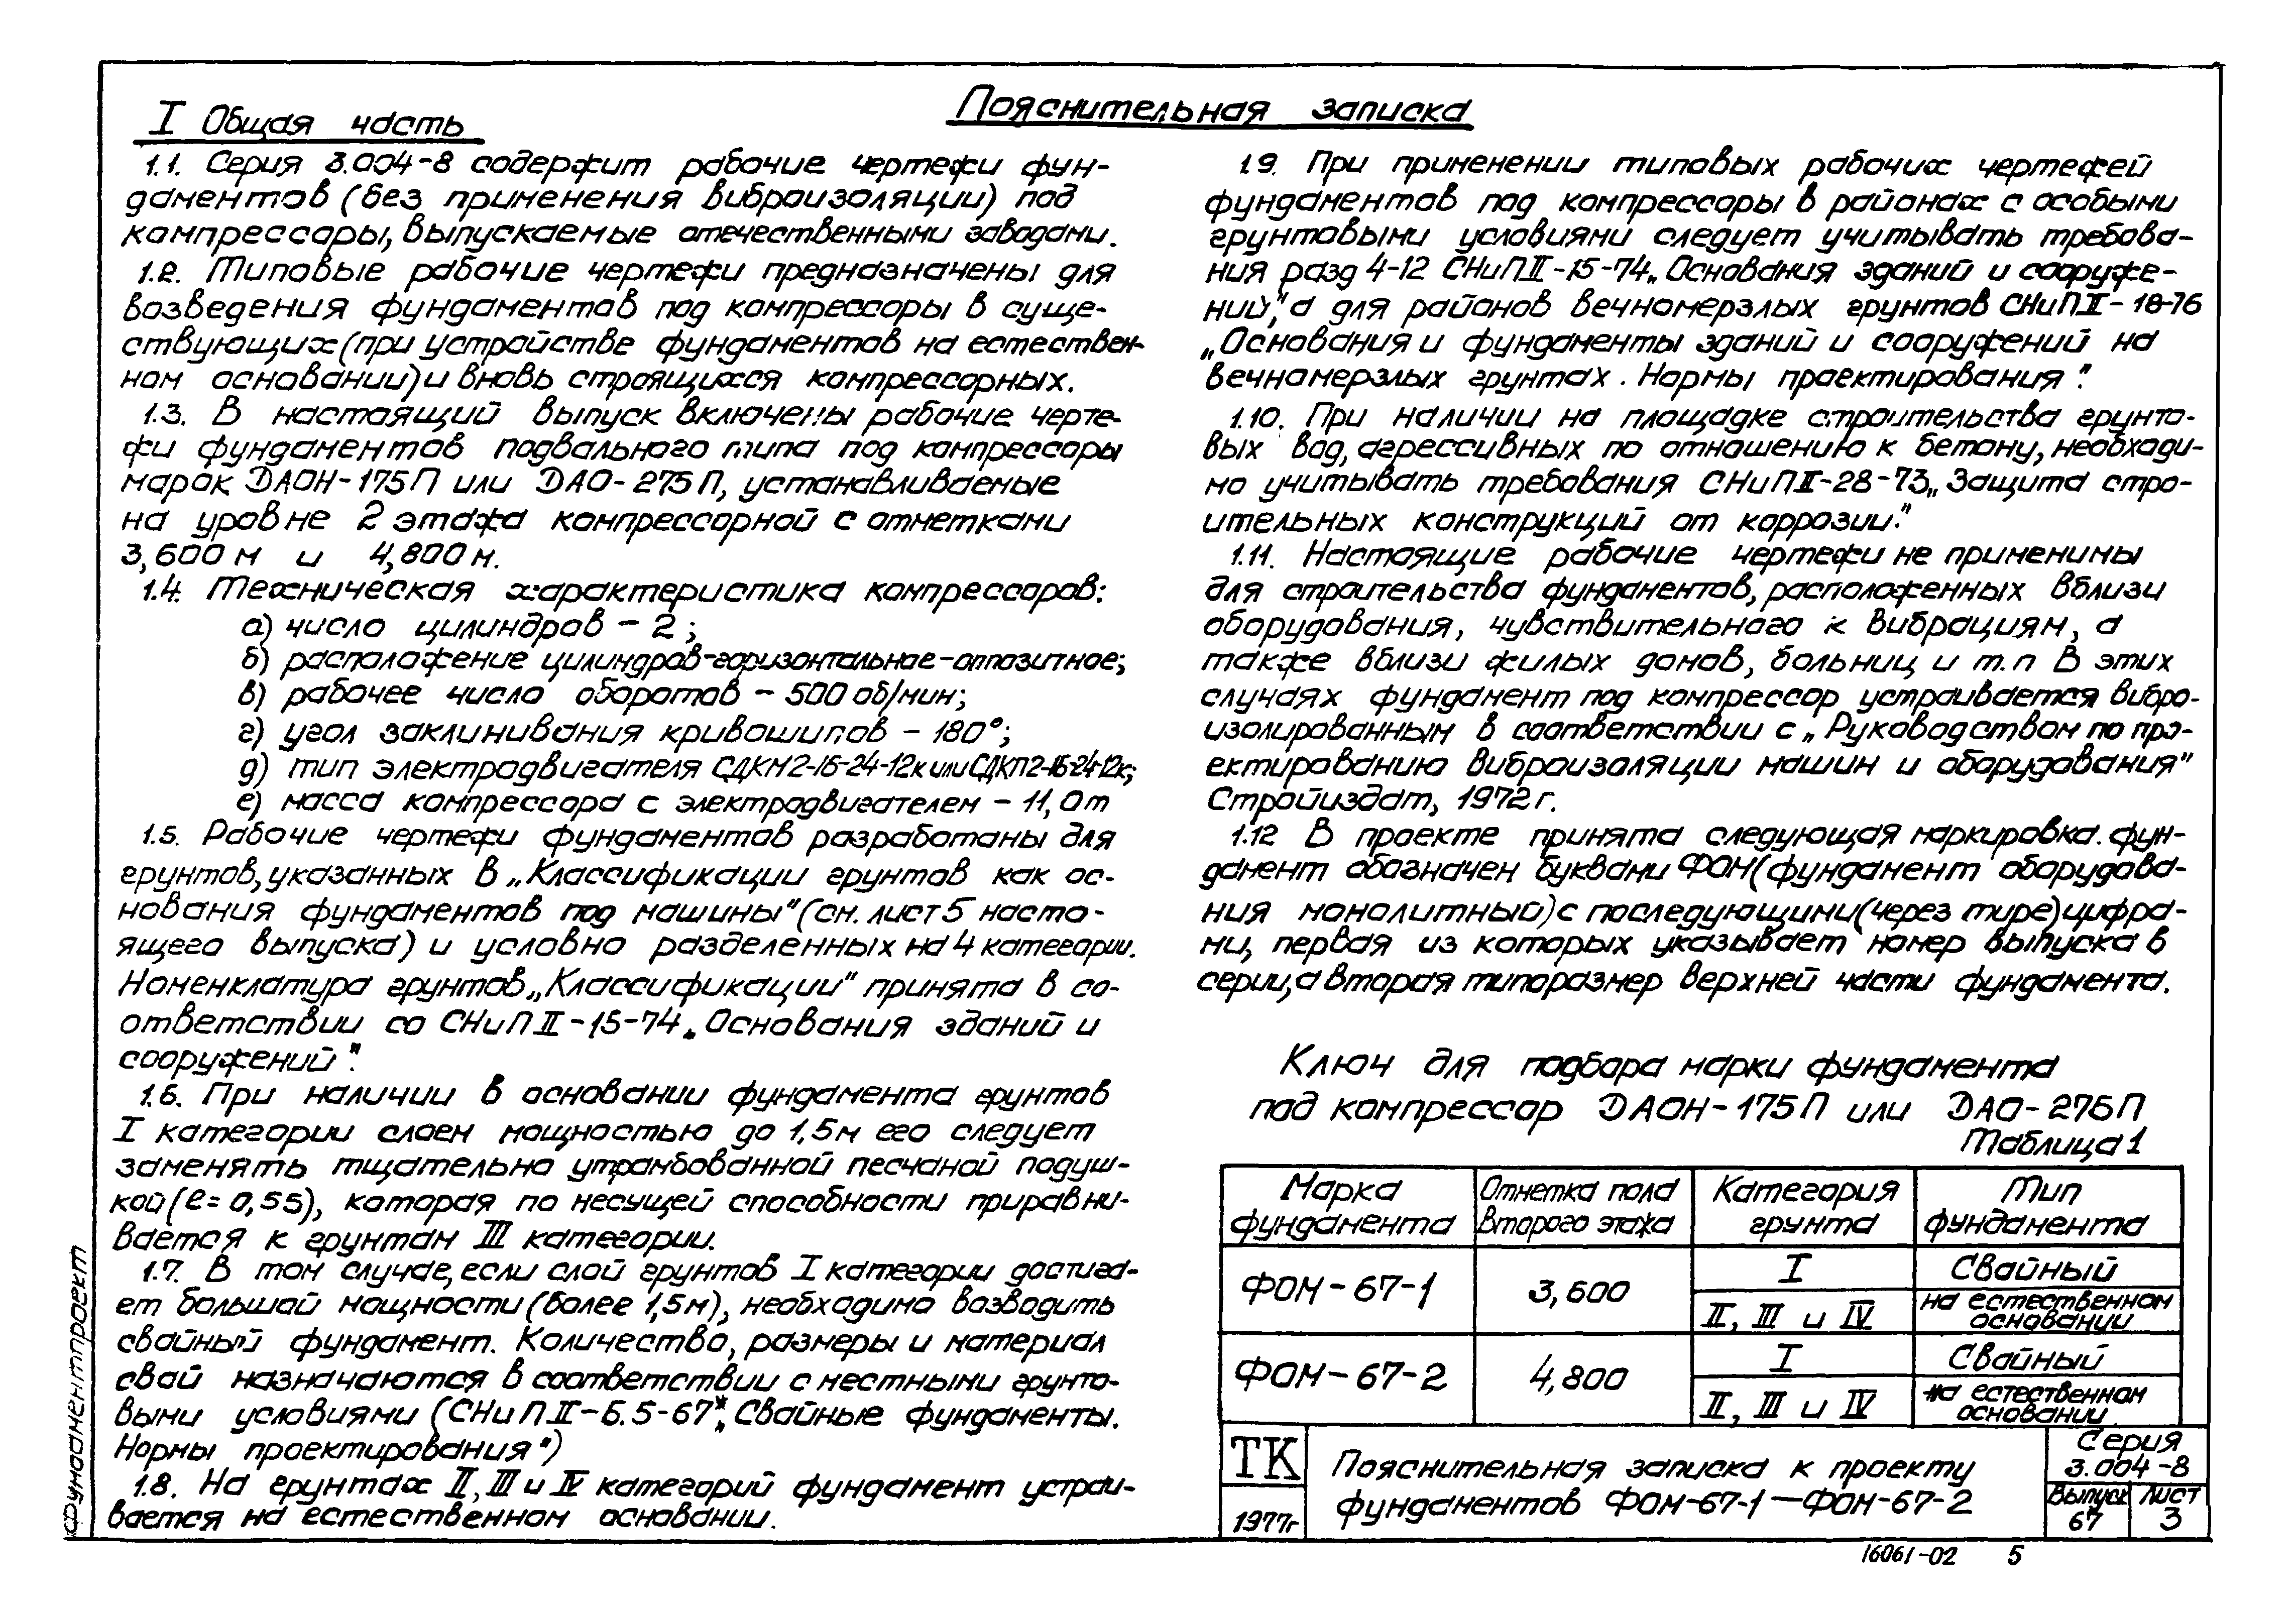 Пояснительная записка
I Общая часть
1.1. Серия 3.004-8 содержит рабочие чертежи фун-
даментов (без применения виброизоляции) под
компрессоры, выпускаемые отечественными заводами.
1.2. Типовые рабочие чертежи предназначены для
возведения фундаментов под компрессоры в суще-
ствующих (при устройстве фундаментов на естествен-
ном основании) и вновь строящихся компрессорных.
1.3. В настоящий выпуск включены рабочие черте-
жи фундаментов подвального типа под компрессоры
марок ДАОН-175П или ДАО-275П, устанавливаемые
на уровне 2 этажа компрессорной с отметками
3,600 м и 4,800 м.
1.4. Техническая характеристика компрессоров:
а) число цилиндров – 2;
б) расположение цилиндров-горизонтальное-оппозитное;
в) рабочее число оборотов – 500 об/мин;
г) угол заклинивания кривошипов – 180°;
д) тип электродвигателя СДКМ2-16-24-12к или СДКП2-16-24-12к;
е) масса компрессора с электродвигателем – 11,0т
1.5. Рабочие чертежи фундаментов разработаны для
грунтов, указанных в „Классификации грунтов как ос-
нования фундаментов под машины" (см. лист 5 насто-
ящего выпуска) и условно разделенных на 4 категории.
Номенклатура грунтов „Классификации" принята в со-
ответствии со СНиП II-15-74 „Основания зданий и
сооружений".
1.6. При наличии в основании фундамента грунтов
I категории слоем мощностью до 1,5м его следует
заменять тщательно утрамбованной песчаной подуш-
кой (е = 0,55), которая по несущей способности приравни-
вается к грунтам III категории.
1.7. В том случае, если слой грунтов I категории достига-
ет большой мощности (более 1,5м), необходимо возводить
свайный фундамент. Количество, размеры и материал
свай назначаются в соответствии с местными грунто-
выми условиями (СНиП II-Б.5-67* „Свайные фундаменты.
Нормы проектирования")
1.8. На грунтах II, III и IV категорий фундамент устраи-
вается на естественном основании.
1.9. При применении типовых рабочих чертежей
фундаментов под компрессоры в районах с особыми
грунтовыми условиями следует учитывать требова-
ния разд 4-12 СНиП II-15-74 „Основания зданий и сооруже-
ний", а для районов вечномерзлых грунтов СНиП II-18-76
„Основания и фундаменты зданий и сооружений на
вечномерзлых грунтах. Нормы проектирования".
1.10. При наличии на площадке строительства грунто-
вых вод, агрессивных по отношению к бетону, необходи-
мо учитывать требования СНиП II-28-73 „Защита стро-
ительных конструкций от коррозии."
1.11. Настоящие рабочие чертежи не применимы
для строительства фундаментов, расположенных вблизи
оборудования, чувствительного к вибрациям, а
также вблизи жилых домов, больниц и т.п В этих
случаях фундамент под компрессор устраивается вибро-
изолированным в соответствии с „Руководством по про-
ектированию виброизоляции машин и оборудования"
Стройиздат, 1972 г.
1.12 В проекте принята следующая маркировка. фун-
дамент обозначен буквами ФОМ (фундамент оборудова-
ния монолитный) с последующими (через тире) цифра-
ми, первая из которых указывает номер выпуска в
серии, а вторая типоразмер верхней части фундамента.
Ключ для подбора марки фундамента
под компрессор ДАОН-175П или ДАО-275П
Таблица 1
Марка фундамента Отметка пола второго этажа Категория грунта Тип фундамента
ФОМ-67-1 3,600 I Свайный
II, III и IV на естественном основании
ФОМ-67-2 4,800 I Свайный
II, III и IV на естественном основании
ТК
1977г
Пояснительная записка к проекту
фундаментов ФОМ-67-1—ФОМ-67-2
Серия
3.004-8
Выпуск Лист
67 3
16061-02 5
Фундаментпроект